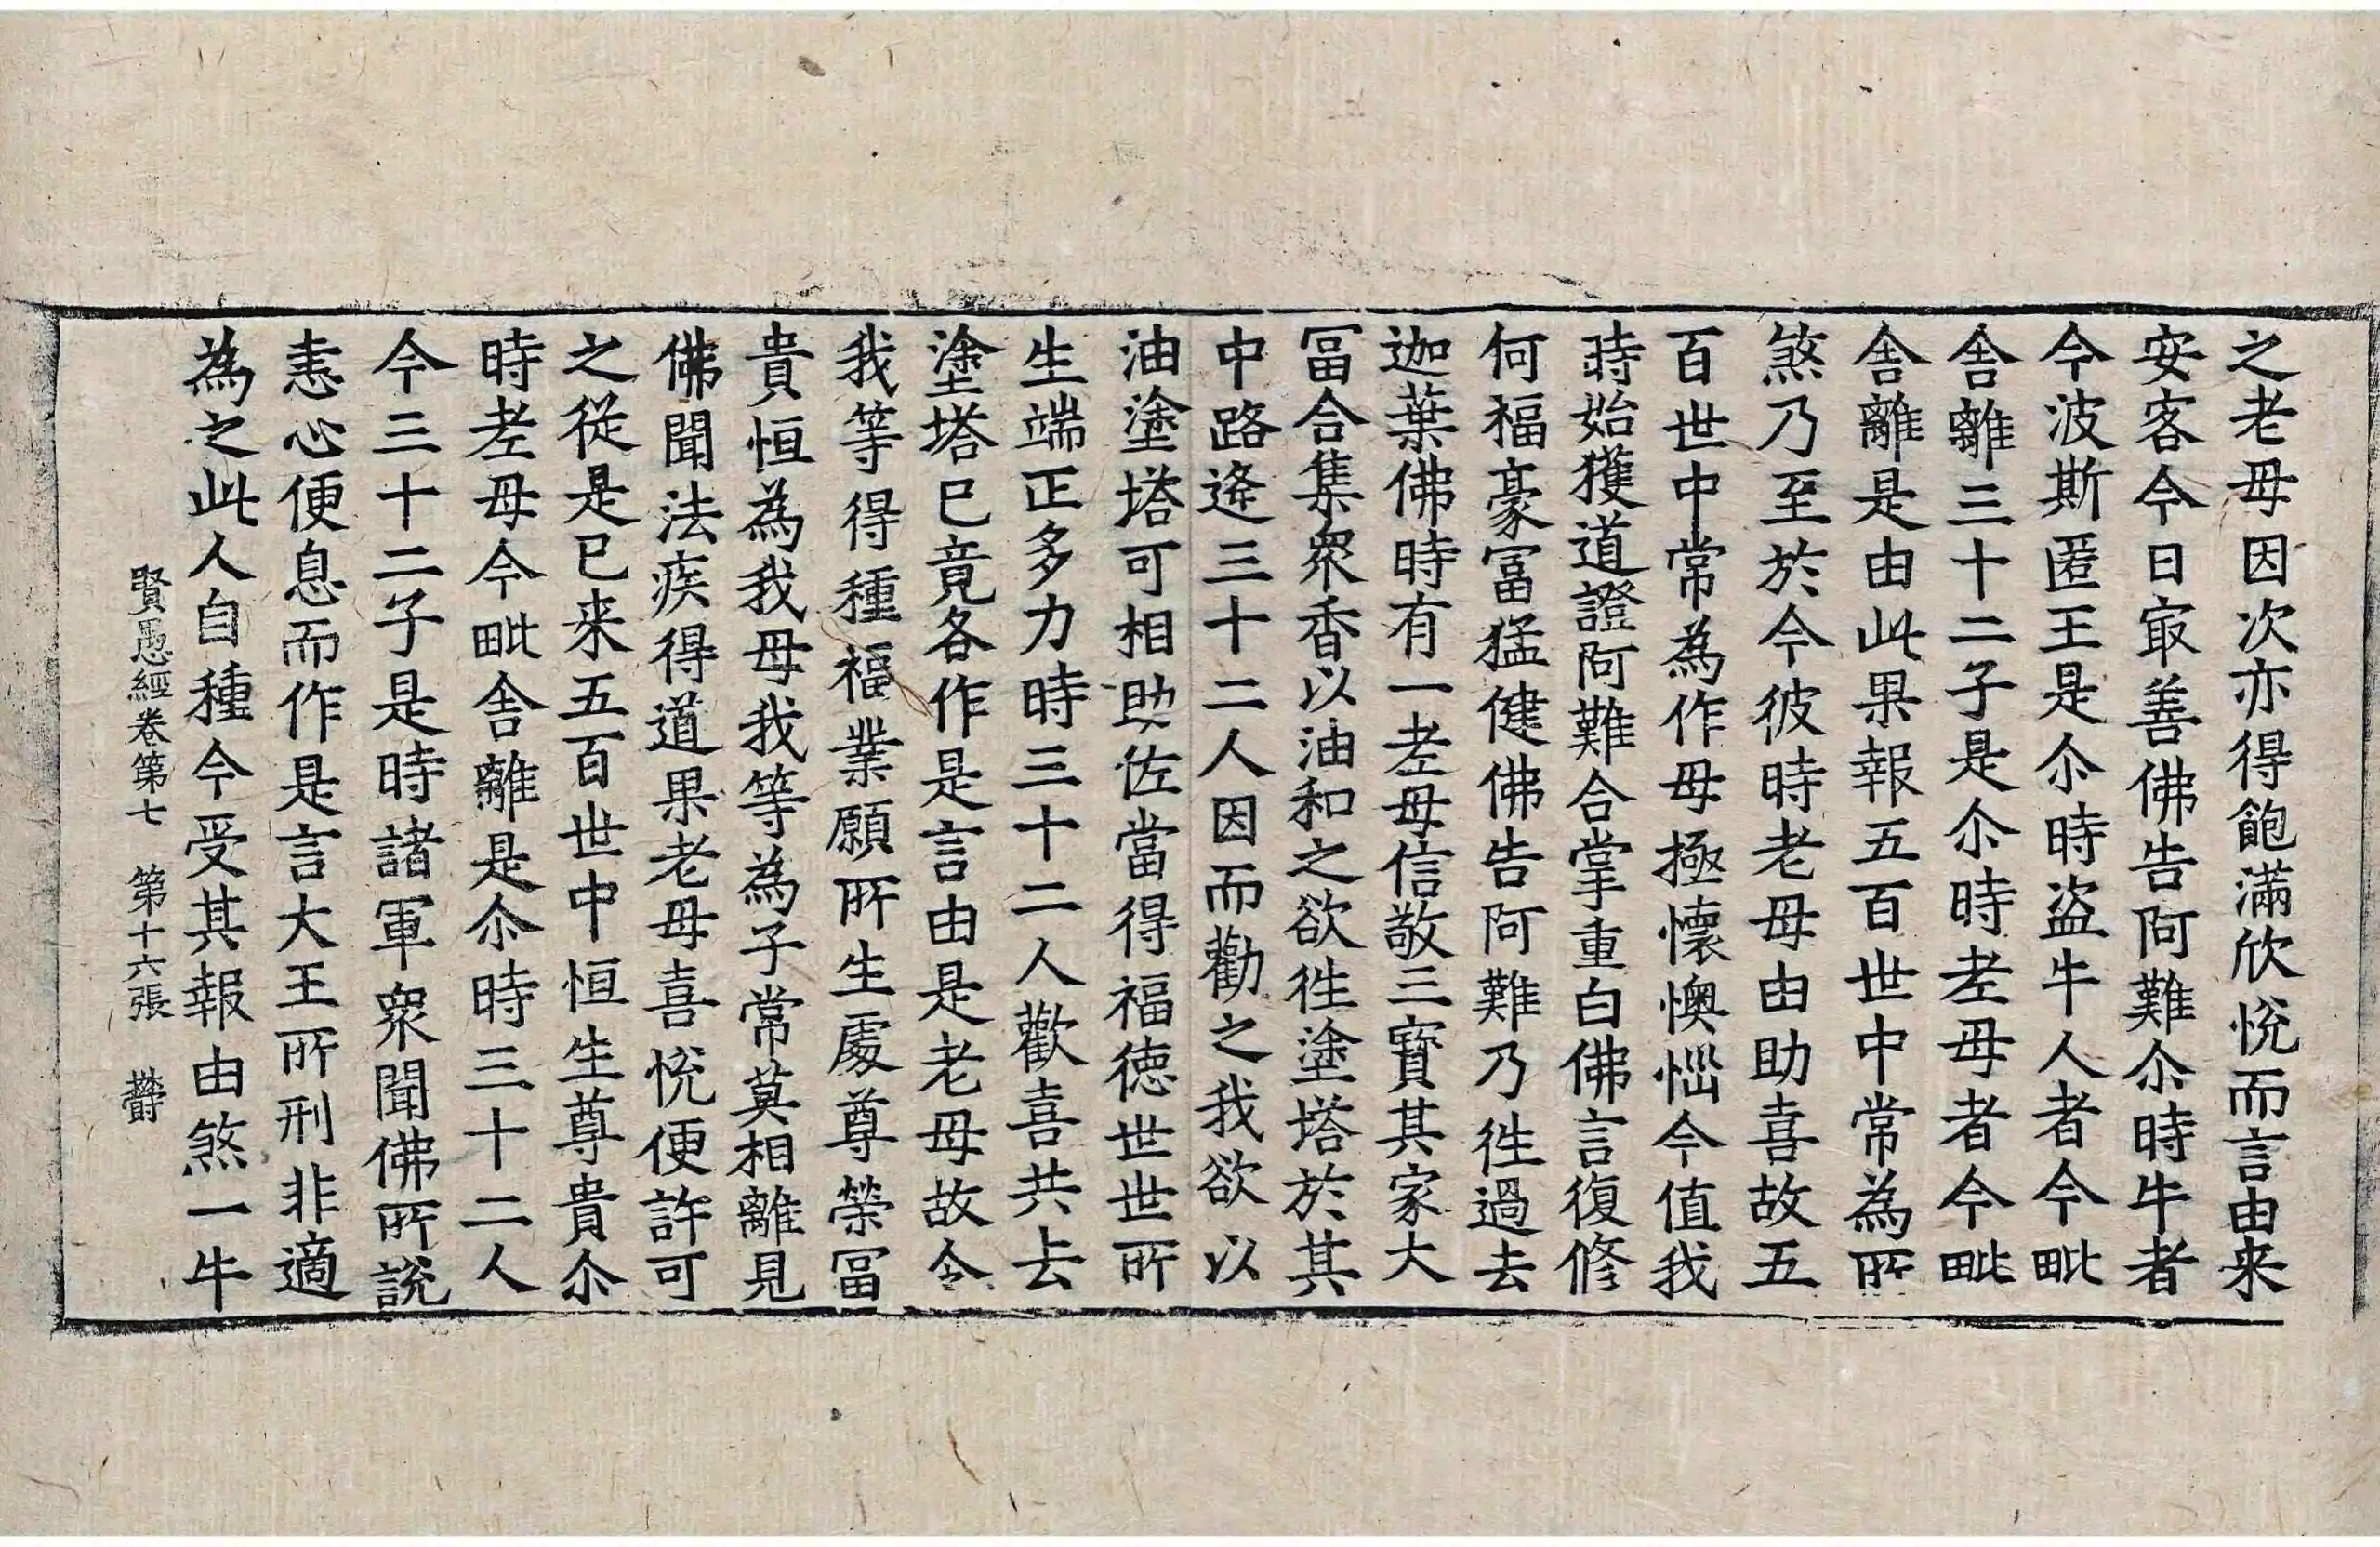 之老母因次亦得飽滿欣恱而言由来
安客今日㝡善佛告阿難尒時牛者
今波斯匿王是尒時盗牛人者今毗
舎離三十二子是尒時老母者今毗
舎離是由此果報五百世中常為所
煞乃至於今彼時老母由助喜故五
百世中常為作母極懷懊惱今值我
時始獲道證阿難合掌重白佛言復修
何福豪冨猛健佛告阿難乃徃過去
迦葉佛時有一老母信敬三寳其家大
冨合集衆香以油和之欲徃塗塔於其
中路逄三十二人因而勸之我欲以
油塗塔可相助佐當得福徳世世所
生端正多力時三十二人歡喜共去
塗塔已竟各作是言由是老母故令
我等得種福業願所生處尊榮冨
貴恒為我母我等為子常莫相離見
佛聞法疾得道果老母喜恱便許可
之從是已来五百世中恒生尊貴尒
時老母今毗舎離是尒時三十二人
今三十二子是時諸軍衆聞佛所說
恚心便息而作是言大王所刑非適
為之此人自種今受其報由煞一牛
賢愚經卷第七　第十六張　欝